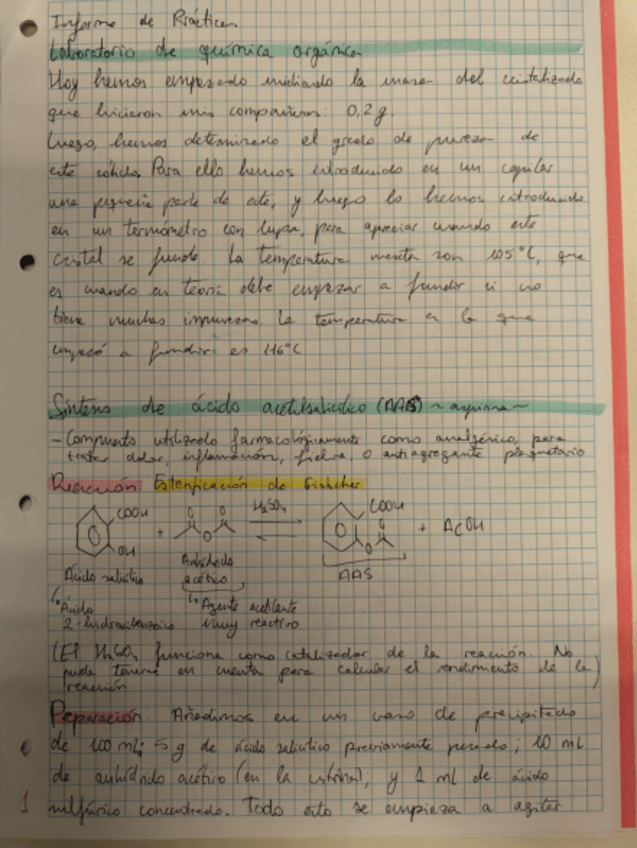 Informe de Prácticas
Laboratorio de química orgánica
Hoy hemos empezado midiendo la masa del cristalizado
que hicieron mis compañeros: 0,2 g.
Luego, hemos determinado el grado de pureza de
este sólido. Para ello hemos introducido en un capilar
una pequeña parte de este, y luego lo hemos introducido
en un termómetro con lupa, para apreciar cuando este
cristal se funde. La temperatura son 105°C, que
es cuando en teoría debe empezar a fundir si no
tiene muchas impurezas. La temperatura a la que
empezó a fundir es 116°C
Síntesis de ácido acetilsalicílico (AAS) ~ aspirina ~
- Compuesto utilizado farmacológicamente como analgésico, para
tratar dolor, inflamación, fiebre, o antiagregante plaquetario
Reacción: Esterificación de Fishcher
COOH
OH
+
O O
O
H₂SO₄
COOH
O
O
+ AcOH
Ácido salicílico
Anhídrido
acético
AAS
Ácido
2-hidroxibenzoico
Agente acetilante
muy reactivo
(El H₂SO₄ funciona como catalizador de la reacción. No
puede tenerse en cuenta para calcular el rendimiento de la
reacción)
Preparación: Añadimos en un vaso de precipitado
de 100 mL; 5 g de ácido salicílico previamente pesado; 10 mL
de anhídrido acético (en la vitrina); y 1 ml de ácido
sulfúrico concentrado. Todo esto se empieza a agitar
1